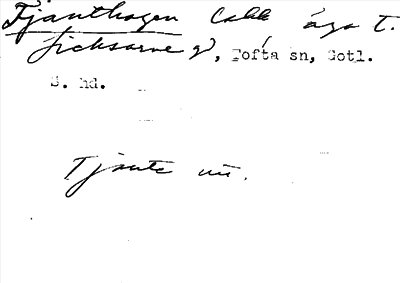 Tjänthagen Calk äga t.
Sicksarve gd, Tofta sn, Gotl.
S. hd.
Tjänte nii.